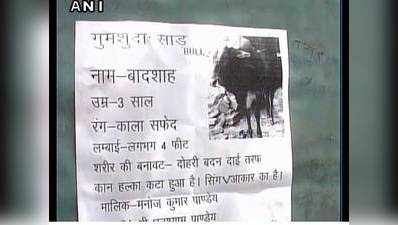 ANI
गुमशुदा साड़
BULL
नाम-बादशाह
उम्र-3 साल
रंग-काला सफेद
लम्बाई-लगभग 4 फीट
शरीर की बनावट- दोहरी बदन दाई तरफ
कान हल्का कटा हुआ है। सिंग V आकार का है।
मालिक-मनोज कुमार पाण्डेय
पाण्डेय